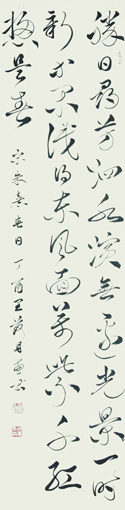 勝日尋芳泗水濱無邊光景一時
新等閒識得東風面萬紫千紅
總是春
宋朱熹春日丁酉